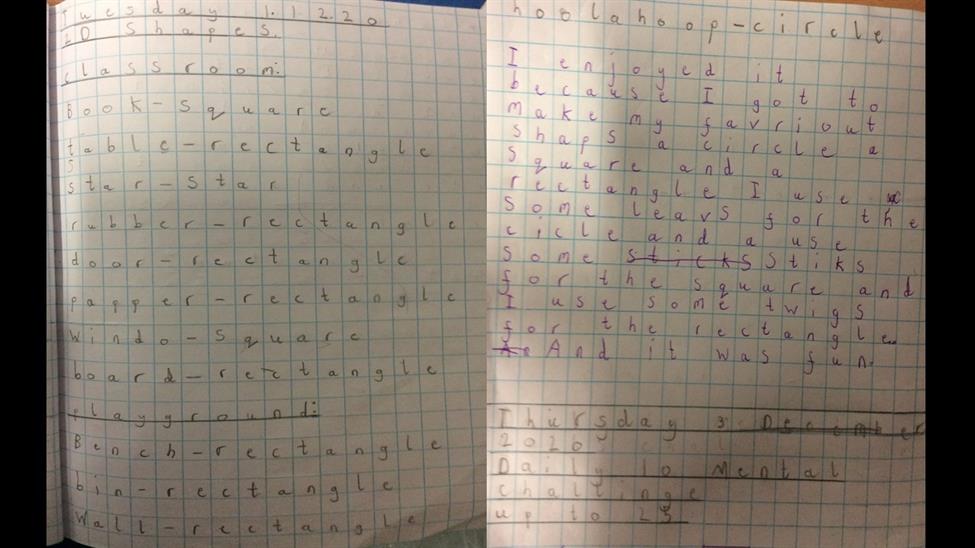 Tuesday 1.12.20
2D Shapes.
classroom:
Book - square
table - rectangle
star - star
rubber - rectangle
door - rectangle
papper - rectangle
windo - square
board - rectangle
playground:
Bench - rectangle
bin - rectangle
wall - rectangle
hoolahoop - circle
I enjoyed it
because I got to
make my favriout
shaps a circle a
square and a
rectangle I use
some leavs for the
cicle and a use
some sticks stiks
for the square and
I use some twigs
for the rectangle.
An And it was fun.
Thursday 3 December
2020
Daily 10 Mental
challinge
up to 25